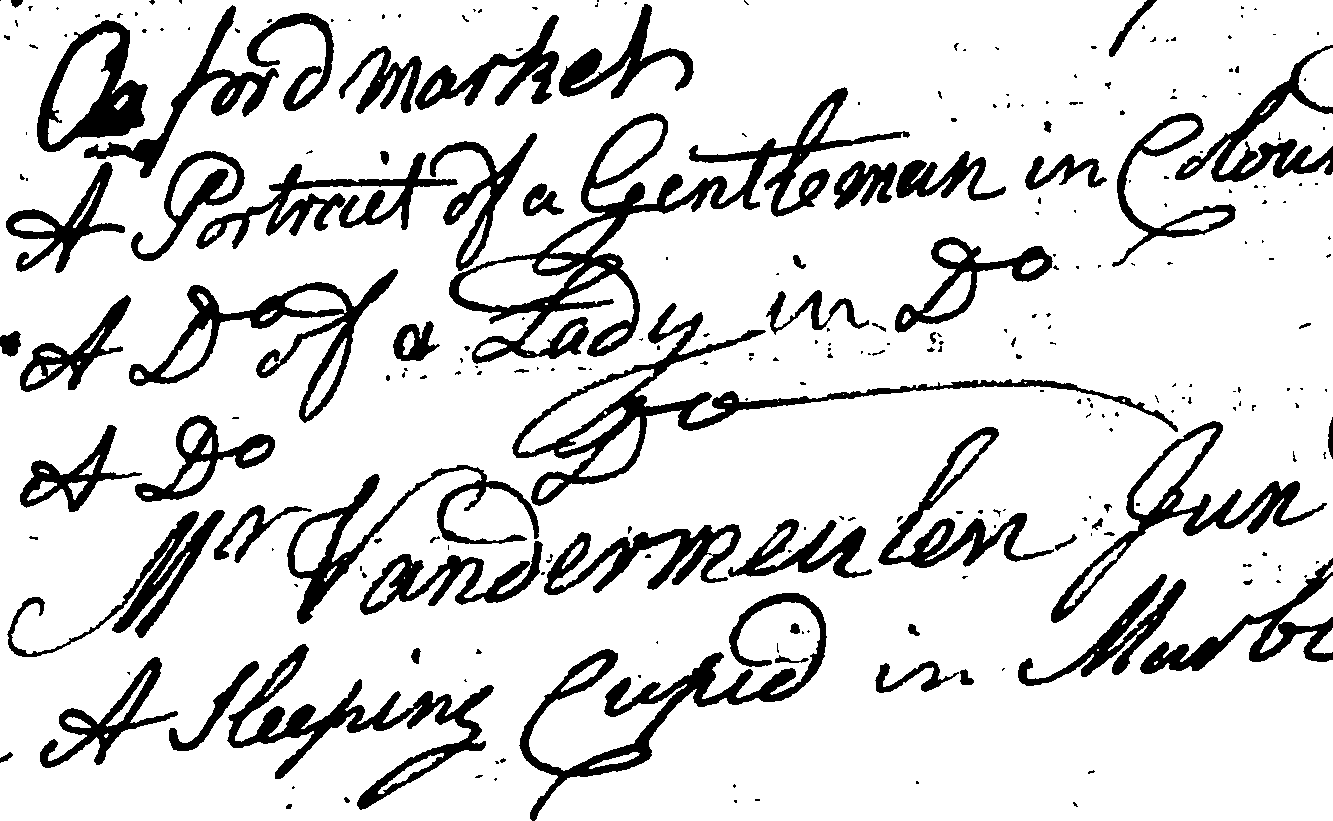 Oxford market
A Portrait of a Gentleman in Colour
A Do of a Lady in Do
A Do Do
Mr Vandermeulen Jun
A Sleeping Cupid in Marb